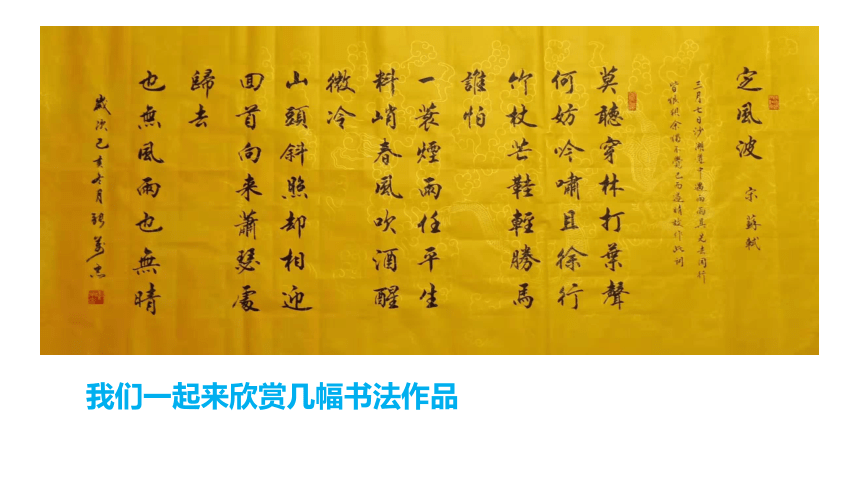 定風波 宋 蘇軾
三月七日沙湖道中遇雨雨具先去同行
皆狼狽余獨不覺已而遂晴故作此詞
莫聽穿林打葉聲
何妨吟嘯且徐行
竹杖芒鞋輕勝馬
誰怕
一蓑煙雨任平生
料峭春風吹酒醒
微冷
山頭斜照却相迎
回首向来蕭瑟處
歸去
也無風雨也無晴
歲次己亥十月
我们一起来欣赏几幅书法作品